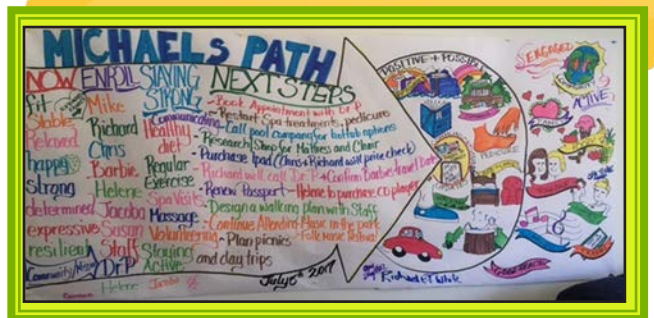 MICHAELS PATH
NOW
fit
Stable
Relaxed
happy
strong
determined
expressive
resilient
ENROLL
Mike
Richard
Chris
Barbie
Helene
Jacoba
Susan
Staff
Dr P
STAYING STRONG
Communicating
Healthy diet
Regular Exercise
Spa Visits
Massage
Volunteering
Staying Active
NEXT STEPS
- Book Appointment with Dr P
- Restart Spa treatments, pedicure
- Call pool company for hot tub options
- Research/Shop for Mattress and Chair
- Purchase Ipad (Chris + Richard will price check)
- Richard will call Dr. P + Confirm Barbie travel
- Renew Passport - Helene to purchase CD player
- Design a walking plan with Staff
- Continue Attending Music in the park
- Folk music festival
- Plan picnics and day trips
July 6th 2017
Helene
Jacoba
POSITIVE + POSSIBLE
PEDICURE
ENGAGED
ACTIVE
GOOD HEALTH
Richard